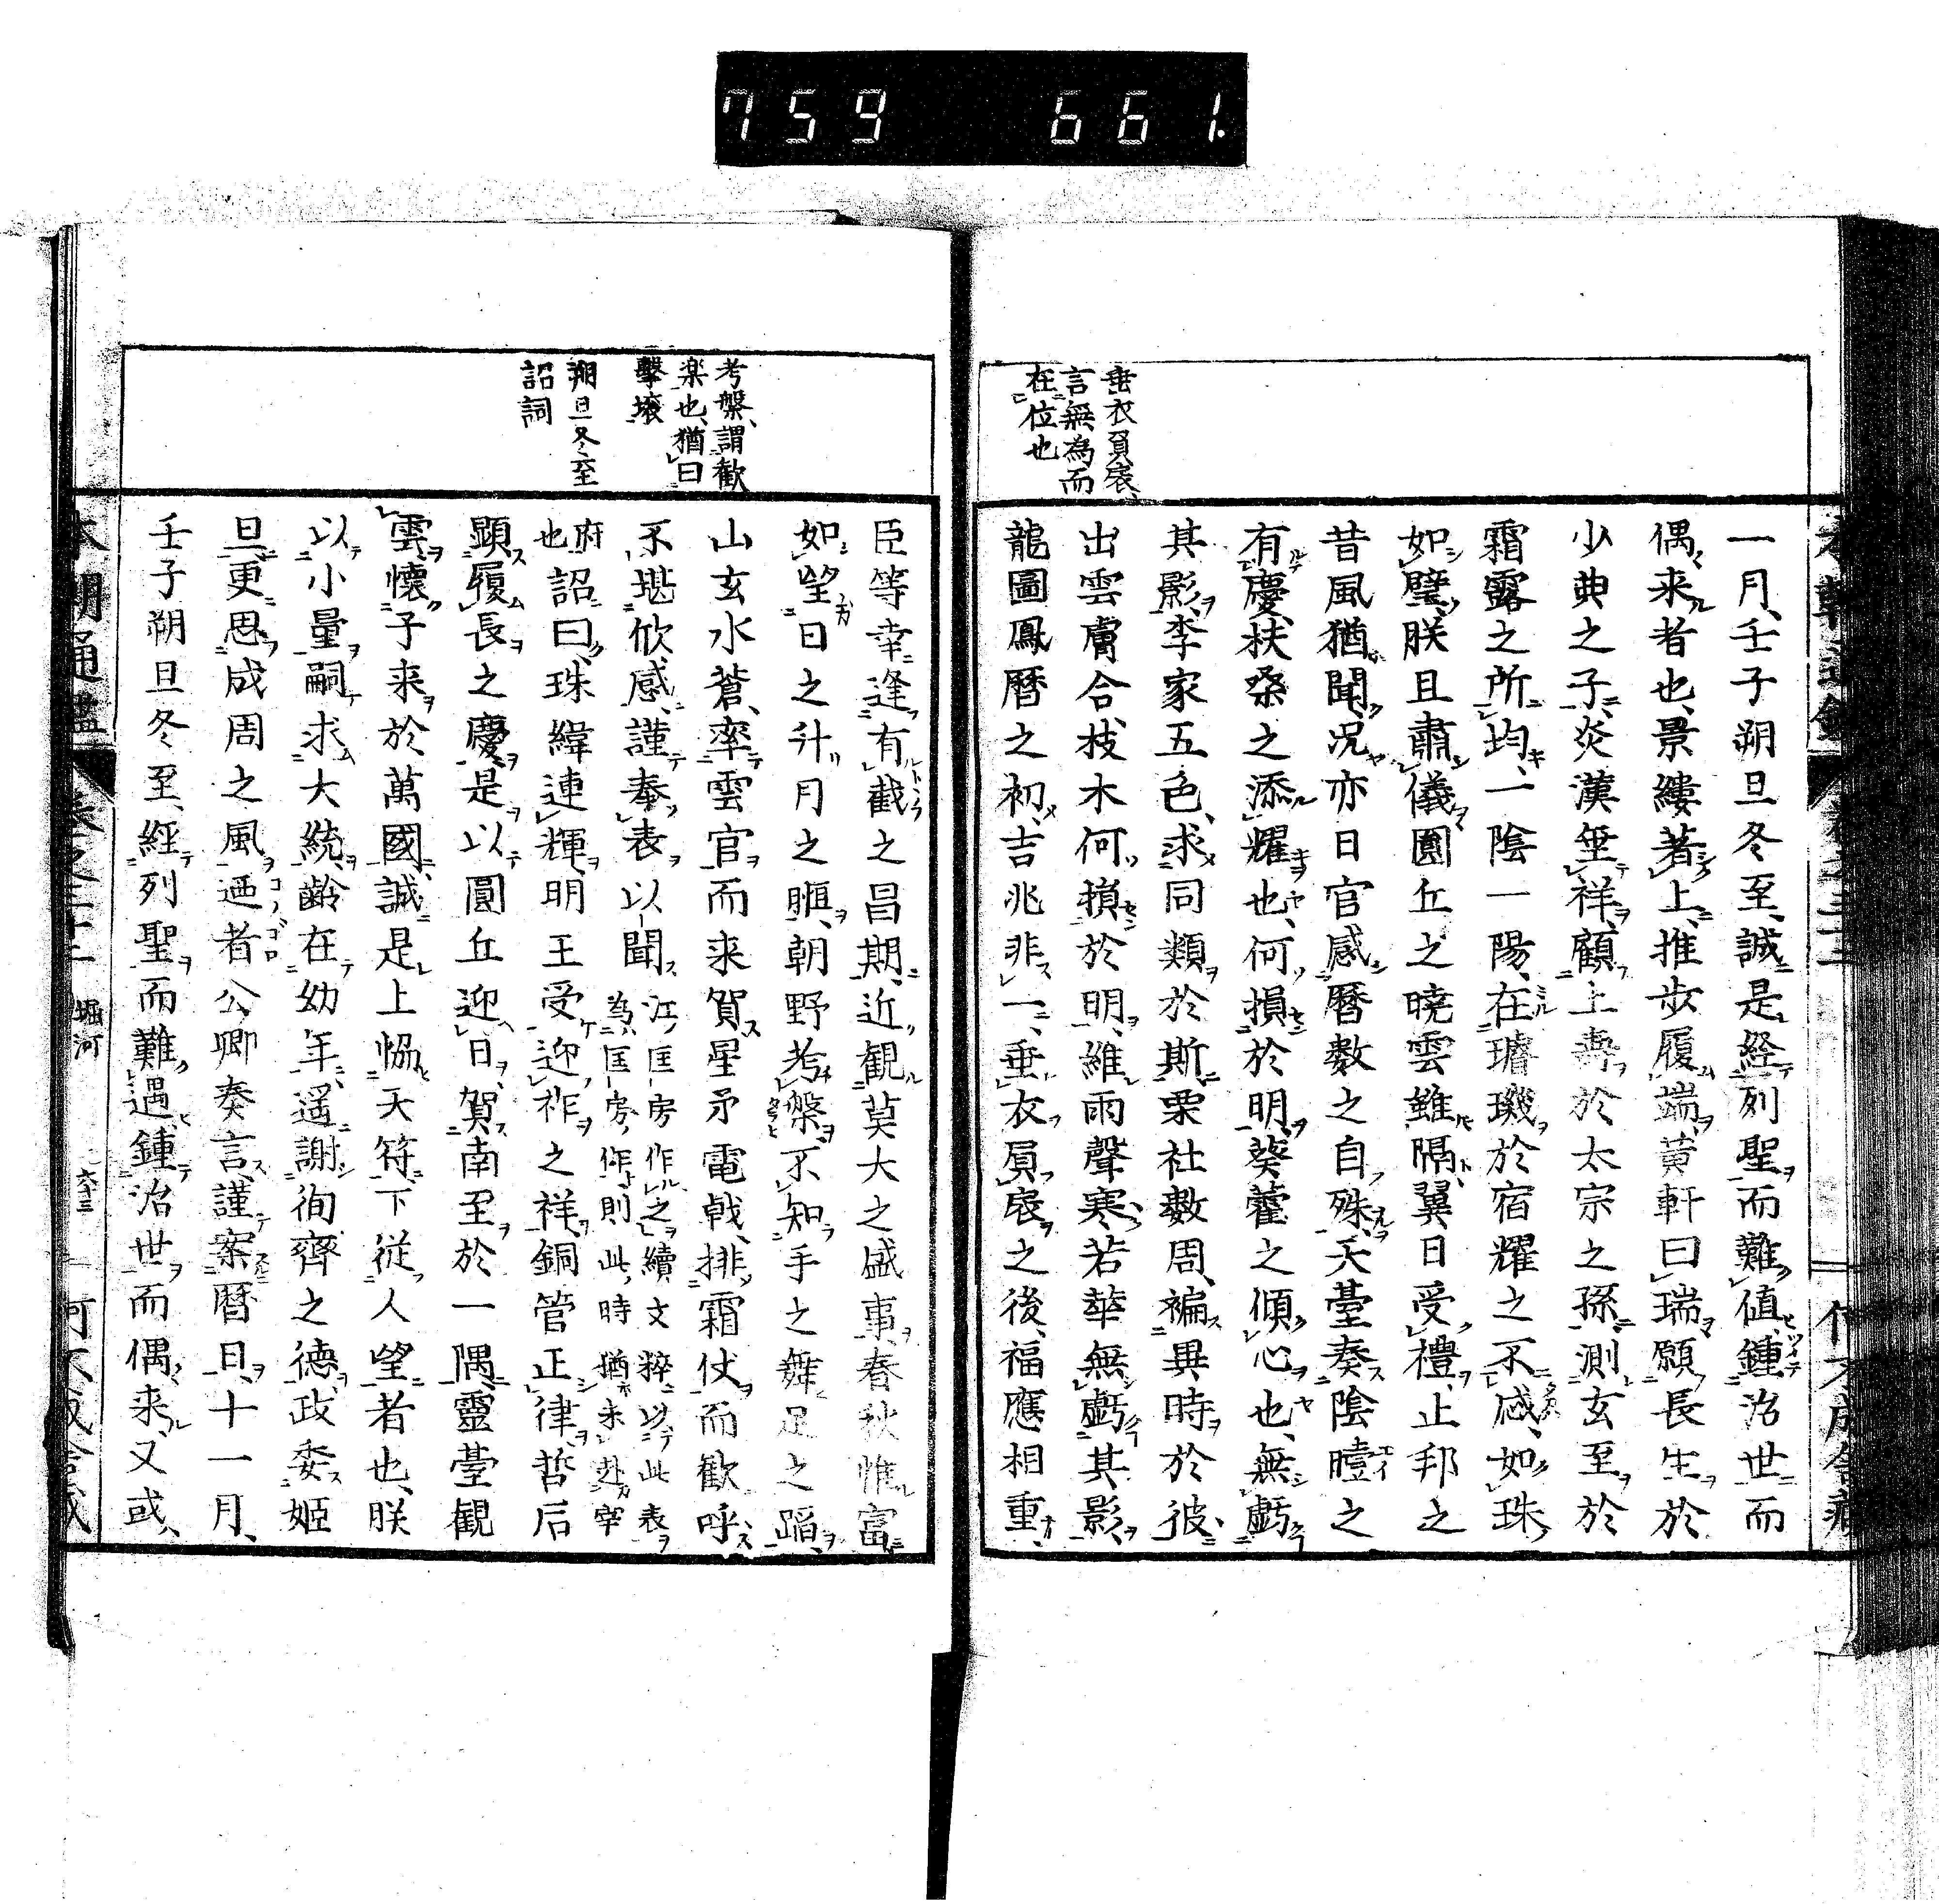 759 661.
垂衣負扆、
言無為而
在位也
一月、壬子朔旦冬至、誠是経列聖而難値、鍾治世而
偶来者也、景縷著上、推歩履端、黄軒曰瑞、願長生於
少典之子、炎漢垂祥、顧上壽於太宗之孫、測玄至於
霜露之所均、一陰一陽、在璿璣於宿耀之不惑、如珠
如璧、朕且肅儀圓丘之曉雲雖隔、翼日受禮、止邦之
昔風猶聞、況亦日官感暦數之自殊、天臺奏陰曀之
有慶、扶桑之添耀也、何損於明、葵藿之傾心也、無虧
其影、李家五色、求同類於斯、栗社數周、褊異時於彼、
出雲膚合、枝木何損於明、維雨聲寒、若華無虧其影、
龍圖鳳暦之初、吉兆非一、垂衣負扆之後、福應相重、
考槃、謂歡
楽也、猶曰
擊壌
朔旦冬至
詔詞
臣等幸逢有截之昌期、近観莫大之盛事、春秋惟富、
如望日之升月之暅、朝野考槃、不知手之舞足之蹈、
山玄水蒼、率雲官而来賀、星矛電戟、排霜仗而歡呼、
不堪欣感、謹奉表以聞江匡房作之、續文粹以此表
為匡房作、則此時猶未赴宰
府也詔曰、珠緯連輝、明王受迎祚之祥、銅管正律、哲后
顕履長之慶、是以圓丘迎日、賀南至於一隅、靈臺観
雲、懐子来於萬國、誠是上恊天符、下從人望者也、朕
以小量嗣求大統、齢在幼年、遥謝徇齊之徳、政委姫
旦、更思成周之風、迺者公卿奏言、謹案暦日、十一月、
壬子朔旦冬至、経列聖而難遇、鍾治世而偶来、又或、
本朝通鑑 巻之三十二 堀河